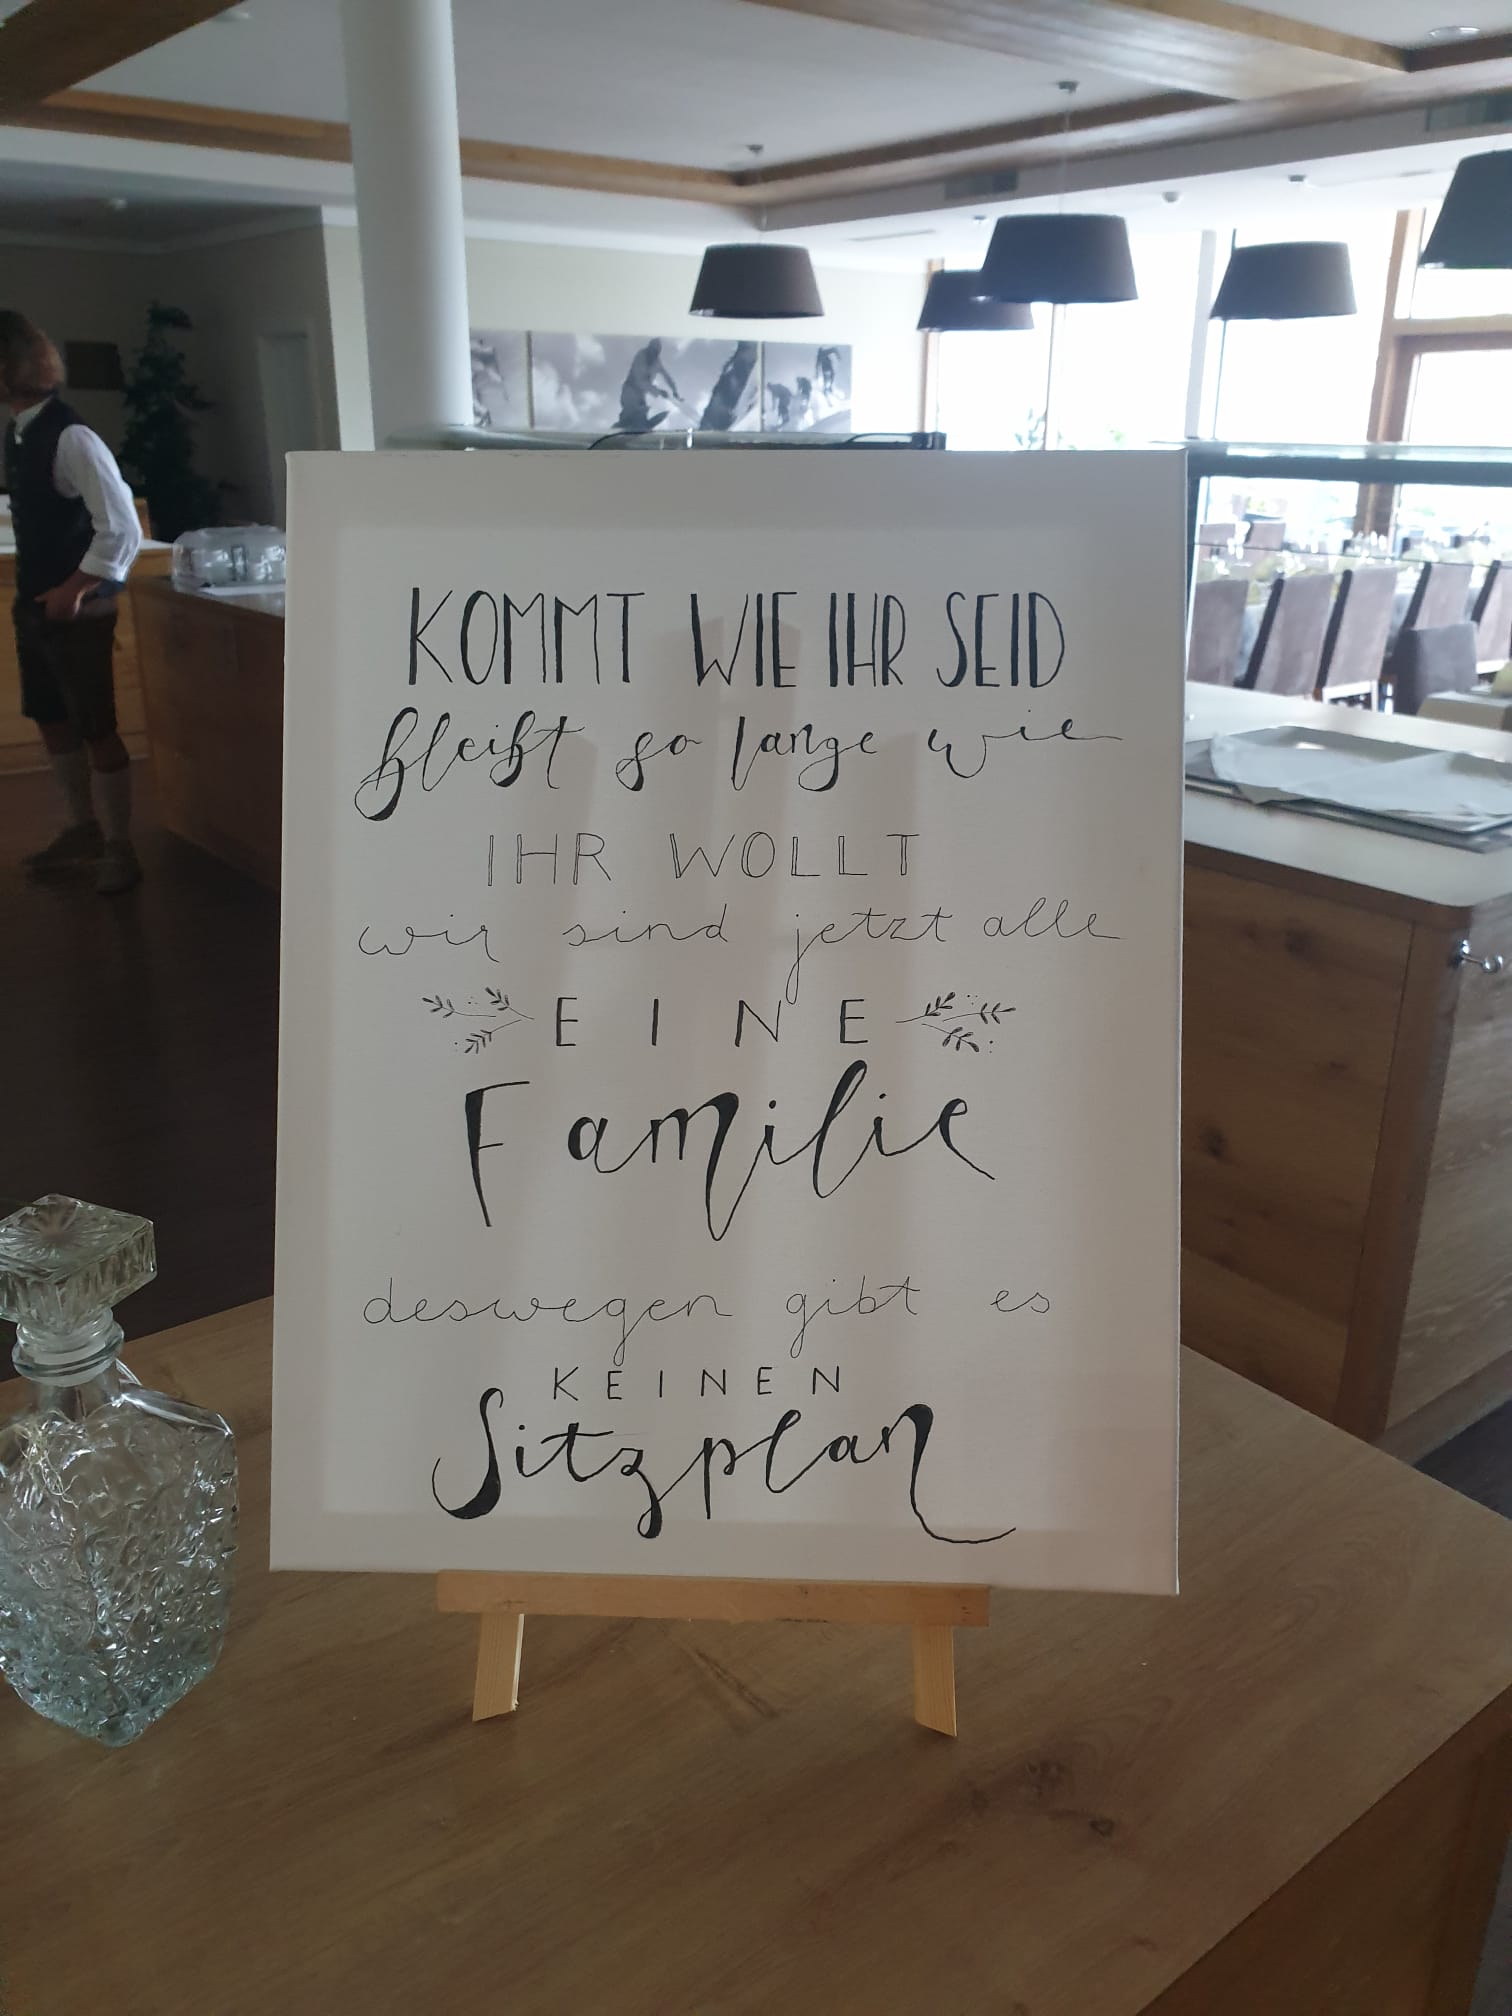 KOMMT WIE IHR SEID
bleibt so lange wie
IHR WOLLT
wir sind jetzt alle
EINE
Familie
deswegen gibt es
KEINEN
Sitzplan